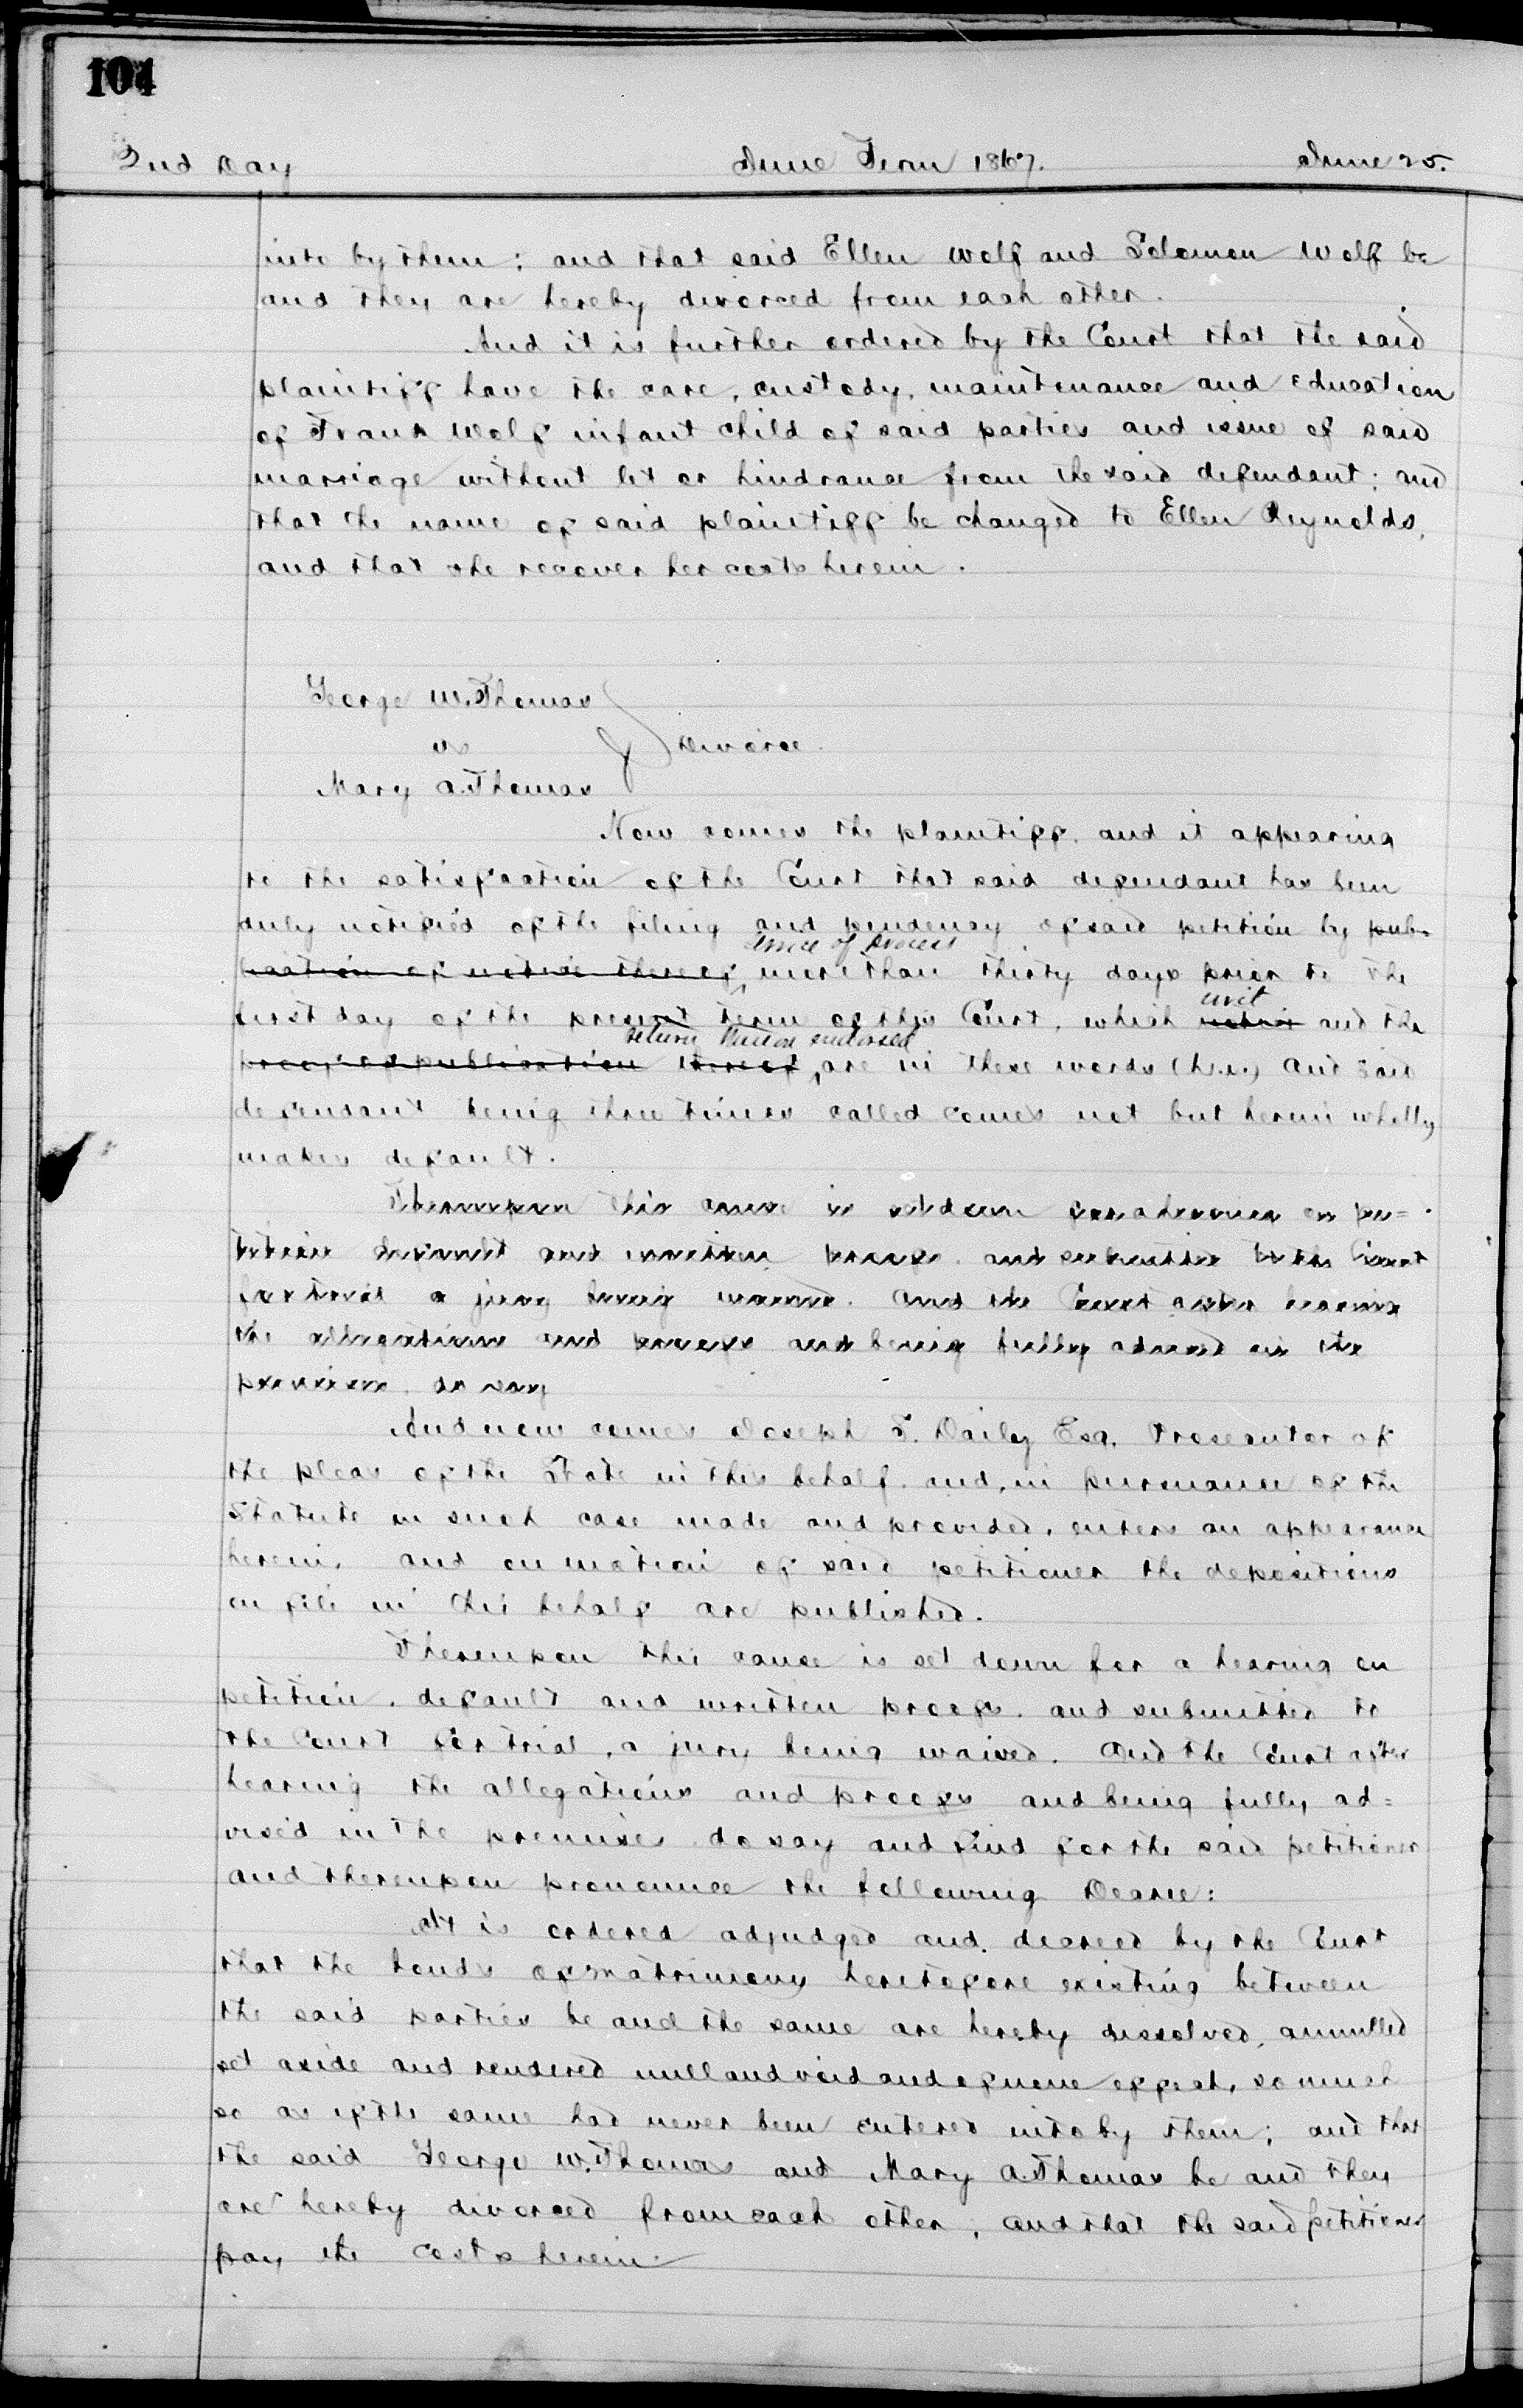 104
2nd Day June Term 1867. June 25.
into by them; and that said Ellen Wolf and Solomon Wolf be
and they are hereby divorced from each other.
And it is further ordered by the Court that the said
plaintiff have the care, custody, maintenance and education
of Frank Wolf infant child of said parties and issue of said
marriage without let or hindrance from the said defendant; and
that the name of said plaintiff be changed to Ellen Reynolds,
and that she recover her costs herein.
George W. Thomas
vs } Divorce.
Mary A. Thomas
Now comes the plaintiff, and it appearing
to the satisfaction of the Court that said defendant has been
duly notified of the filing and pendency of said petition by pub-
service of process
lication of notice thereof, more than thirty days prior to the
writ
first day of the present term of this Court, which notice and the
return thereon endorsed
proof of publication thereof, are in these words (h.i.) and said
defendant being three times called comes not but herein wholly
makes default.
Thereupon this cause is set down for a hearing on pe=
tition default and written proofs and submitted to the Court
for trial a jury being waived. And the Court after hearing
the allegations and proofs and being fully advised in the
premises do say
And now comes Joseph S. Daily Esq. Prosecutor of
the pleas of the State in this behalf and, in pursuance of the
Statute in such case made and provided, enters an appearance
herein, and on motion of said petitioner the depositions
on file in this behalf are published.
Thereupon this cause is set down for a hearing on
petition, default and written proofs, and submitted to
the Court for trial, a jury being waived. And the Court after
hearing the allegations and proofs and being fully ad=
vised in the premises do say and find for the said petitioner
and thereupon pronounce the following Decree:
It is ordered adjudged and decreed by the Court
that the bonds of matrimony heretofore existing between
the said parties be and the same are hereby dissolved, annulled
set aside and rendered null and void and of none effect, so much
so as if the same had never been entered into by them; and that
the said George W. Thomas and Mary A. Thomas be and they
are hereby divorced from each other; and that the said petitioner
pay the costs herein